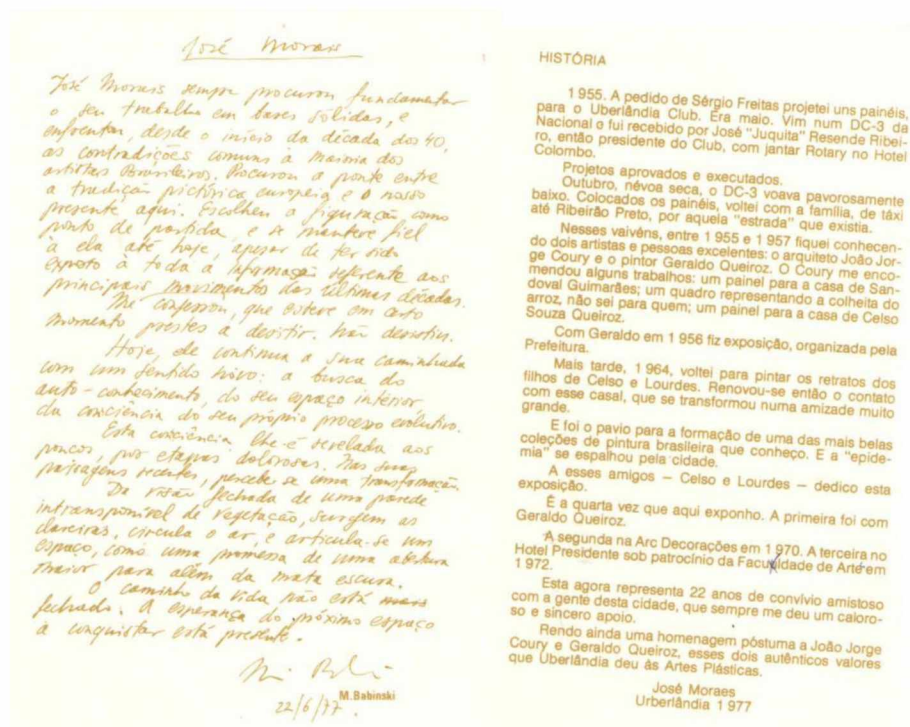 José Morais
José Morais sempre procurou fundamentar
o seu trabalho em bases sólidas, e
enfrentou, desde o início da década dos 40,
as contradições comuns à maioria dos
artistas Brasileiros. Procurou a ponte entre
a tradição pictórica européia e o nosso
presente aqui. Escolheu a figuração como
ponto de partida, e se manteve fiel
à ela até hoje, apesar de ter sido
exposto à toda a informação referente aos
principais movimentos das últimas décadas.
Me confessou, que esteve em certo
momento prestes a desistir. Não desistiu.
Hoje, ele continua a sua caminhada
com um sentido novo: a busca do
auto-conhecimento, do seu espaço interior
da consciência do seu próprio processo evolutivo.
Esta consciência lhe é revelada aos
poucos, por etapas dolorosas. Nas suas
paisagens recentes, percebe-se uma transformação.
Da visão fechada de uma parede
intransponível de vegetação, surgem as
clareiras, circula o ar, e articula-se um
espaço, como uma promessa de uma abertura
maior para além da mata escura.
O caminho da vida não está mais
fechado. A esperança do próximo espaço
à conquistar está presente.
M.Babinski
22/6/77.
HISTÓRIA
1 955. A pedido de Sérgio Freitas projetei uns painéis,
para o Uberlândia Club. Era maio. Vim num DC-3 da
Nacional o fui recebido por José "Juquita" Resende Ribei-
ro, então presidente do Club, com jantar Rotary no Hotel
Colombo.
Projetos aprovados e executados.
Outubro, névoa seca, o DC-3 voava pavorosamente
baixo. Colocados os painéis, voltei com a família, de táxi
até Ribeirão Preto, por aquela "estrada" que existia.
Nesses vaivéns, entre 1 955 e 1 957 fiquei conhecen-
do dois artistas e pessoas excelentes: o arquiteto João Jor-
ge Coury e o pintor Geraldo Queiroz. O Coury me enco-
mendou alguns trabalhos: um painel para a casa de San-
doval Guimarães; um quadro representando a colheita do
arroz, não sei para quem; um painel para a casa de Celso
Souza Queiroz.
Com Geraldo em 1 956 fiz exposição, organizada pela
Prefeitura.
Mais tarde, 1 964, voltei para pintar os retratos dos
filhos de Celso e Lourdes. Renovou-se então o contato
com esse casal, que se transformou numa amizade muito
grande.
E foi o pavio para a formação de uma das mais belas
coleções de pintura brasileira que conheço. E a "epide-
mia" se espalhou pela cidade.
A esses amigos – Celso e Lourdes – dedico esta
exposição.
É a quarta vez que aqui exponho. A primeira foi com
Geraldo Queiroz.
A segunda na Arc Decorações em 1 970. A terceira no
Hotel Presidente sob patrocínio da Faculdade de Arte em
1 972.
Esta agora representa 22 anos de convívio amistoso
com a gente desta cidade, que sempre me deu um caloro-
so e sincero apoio.
Rendo ainda uma homenagem póstuma a João Jorge
Coury e Geraldo Queiroz, esses dois autênticos valores
que Uberlândia deu às Artes Plásticas.
José Moraes
Urberlândia 1 977